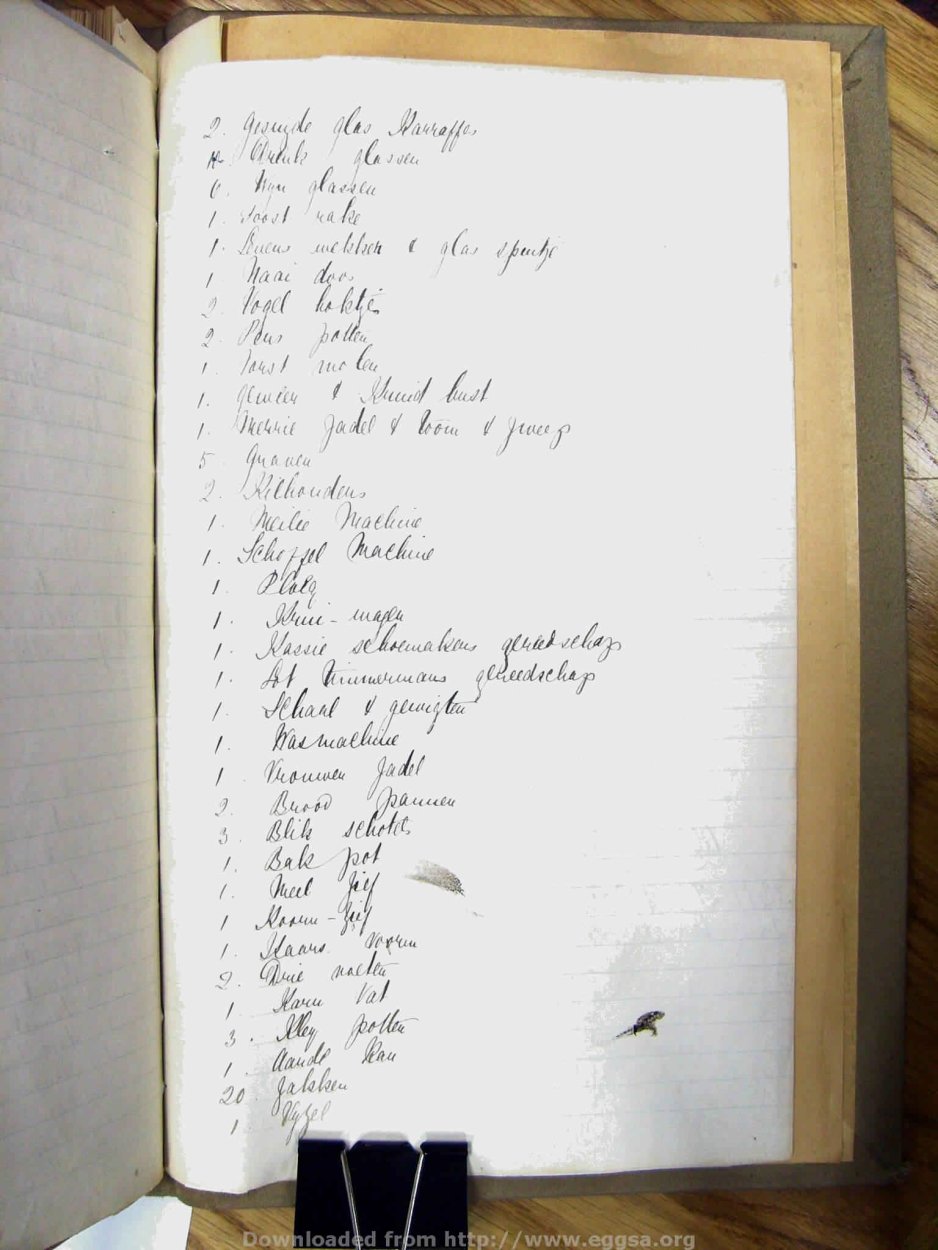 2. glas Karraffes
Drink glassen
6. Wyn glassen
1. Toost rake
1. & glas spuitje
1. Naai doos
2. Vogel hokkies
2. potten
1. Worst molen
1. geweer & Kruid
1. Merrie Zadel & toom & zweep
5. Graven
2.
1. Meilie Machine
1. Schoffel Machine
1. Ploeg
1. Krui-wagen
1. Kassie schoemakers gereedschap
1. Lot timmermans gereedschap
1. Schaal & gewigten
1. Wasmachine
1. Vrouwen Zadel
2. Brood pannen
3. Blik schotels
1. Bak pot
1. Meel Zief
1 Koorn-Zief
1. Kaars vorm
2. Drie voeten
1 Karn Vat
3. Kley potten
1. Kan
20. Zakken
1. Vyzel
Downloaded from http://www.eggsa.org